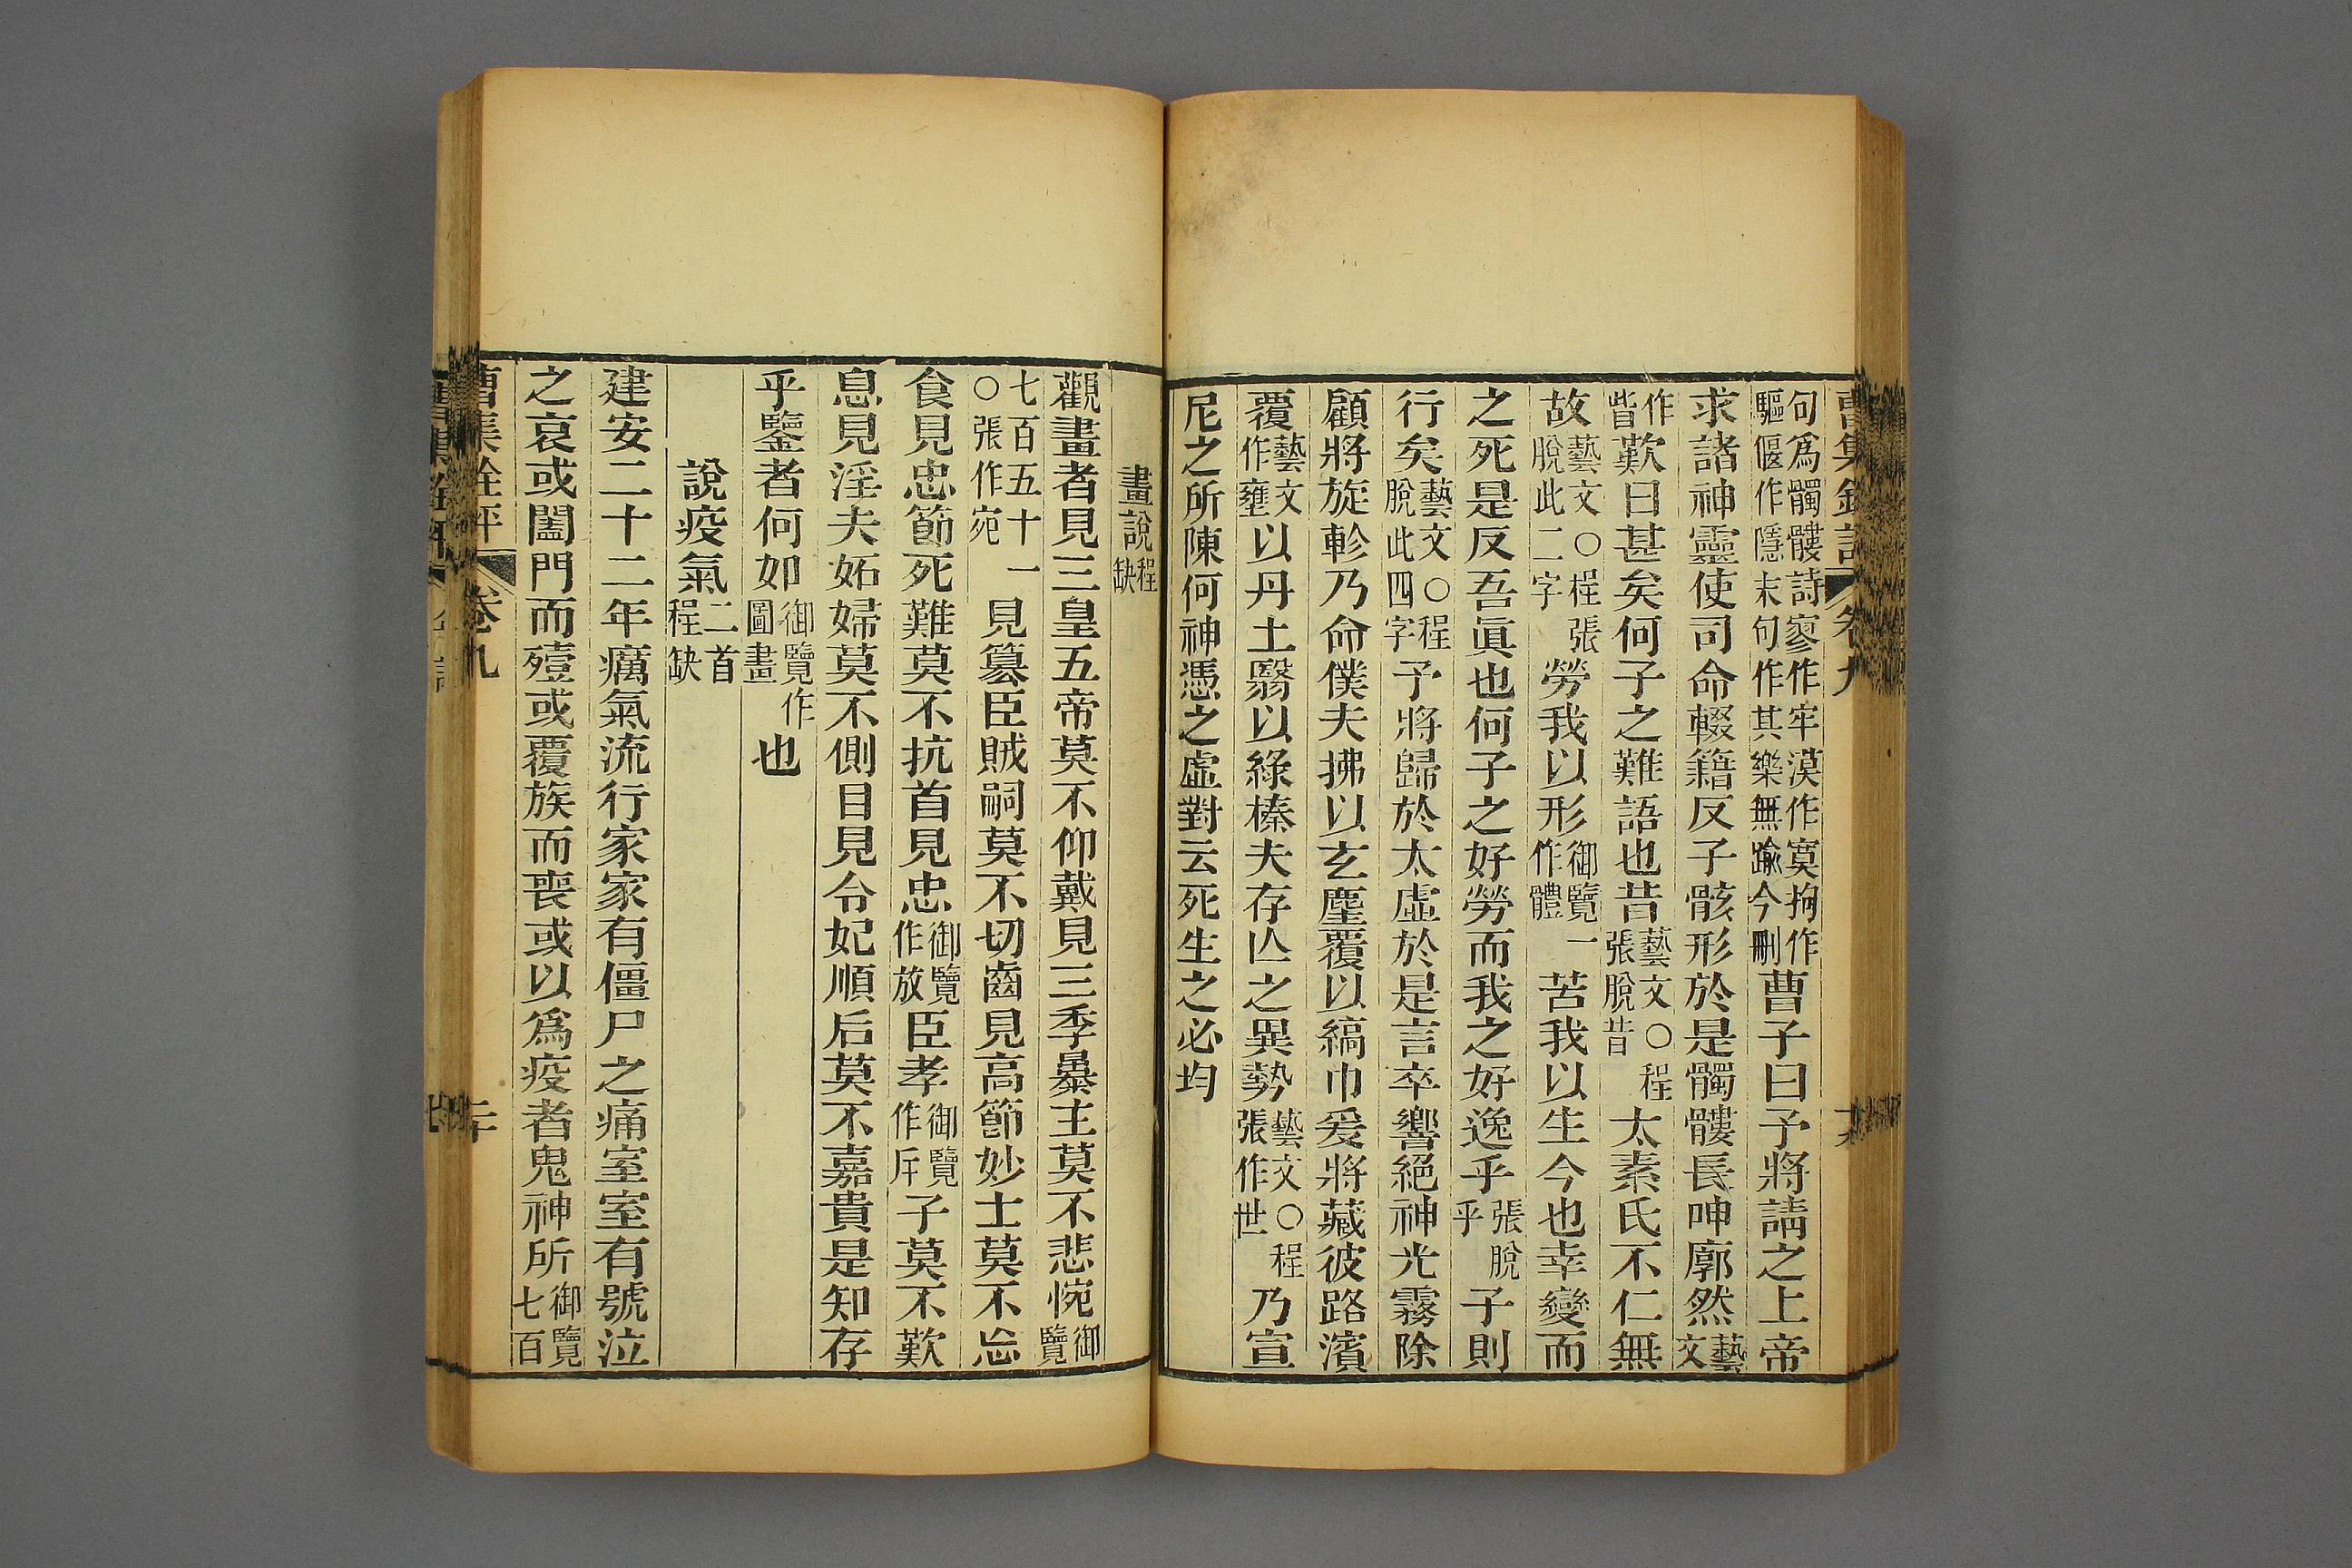 句為髑髏詩寥作牢漠作寞拘作驅偃作隱末句作其樂無踰今刪曹子曰予將請之上帝
求諸神靈使司命輟籍反子骸形於是髑髏長呻廓然藝文
作皆歎曰甚矣何子之難語也昔藝文○程張脫昔太素氏不仁無
故藝文○程張脫此二字勞我以形御覽一作體苦我以生今也幸變而
之死是反吾眞也何子之好勞而我之好逸乎張脫乎子則
行矣藝文○程脫此四字予將歸於太虛於是言卒響絕神光霧除
顧將旋軫乃命僕夫拂以玄塵覆以縞巾爰將藏彼路濱
覆藝文作壅以丹土翳以綠榛夫存亾之異勢藝文○程張作世乃宣
尼之所陳何神憑之虛對云死生之必均
畫說程缺
觀畫者見三皇五帝莫不仰戴見三季暴主莫不悲惋御覽
七百五十一○張作宛見篡臣賊嗣莫不切齒見高節妙士莫不忘
食見忠節死難莫不抗首見忠御覽作放臣孝御覽作斥子莫不歎
息見淫夫妬婦莫不側目見令妃順后莫不嘉貴是知存
乎鑒者何如御覽作圖畫也
說疫氣二首程缺
建安二十二年癘氣流行家家有僵尸之痛室室有號泣
之哀或闔門而殪或覆族而喪或以為疫者鬼神所御覽七百
曹集銓評
卷九
二十